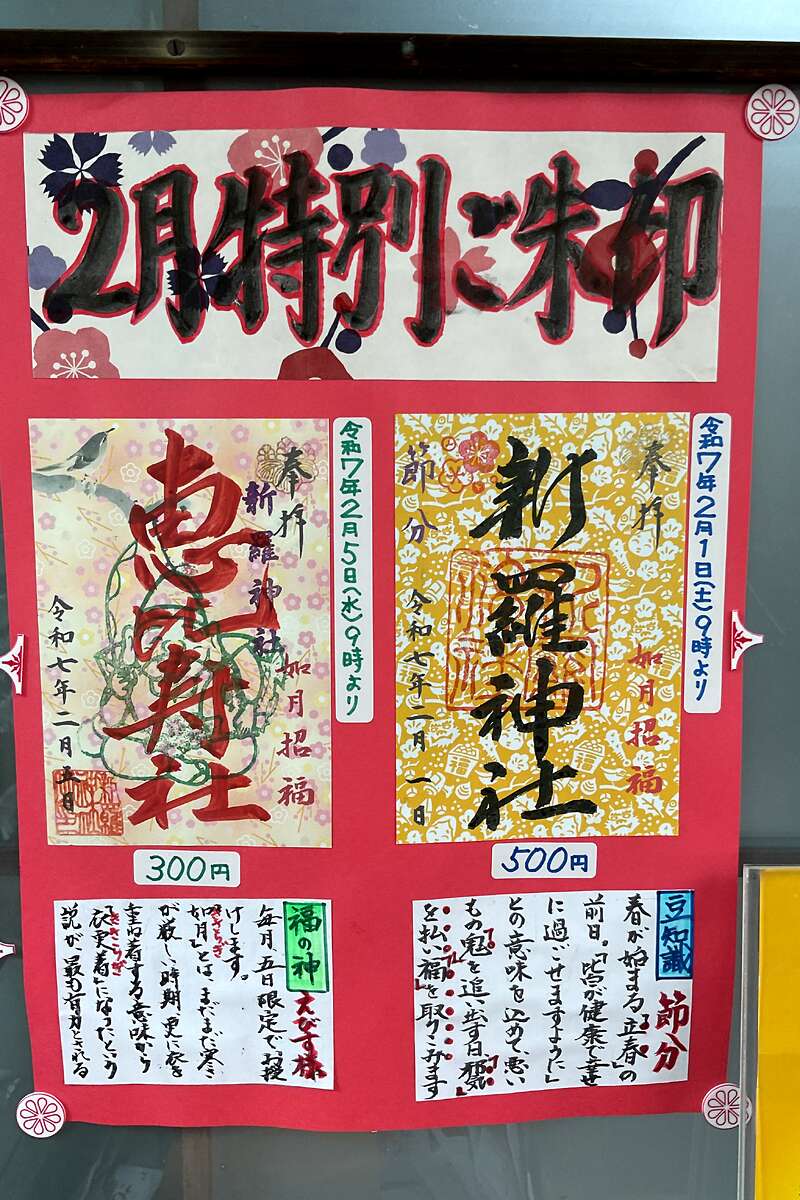 2月特別ご朱印
令和7年2月1日(土)9時より
奉拝
如月招福
新羅神社
節分
令和七年二月一日
500円
令和7年2月5日(水)9時より
奉拝
新羅神社
如月招福
恵比寿社
令和七年二月五日
300円
豆知識 節分
春が始まる「立春」の
前日。「皆が健康で幸せ
に過ごせますように」
との意味を込めて、悪い
もの「鬼」を追い出す日「邪気」
を払い「福」を取りこみます
福の神 えびす様
毎月、五日限定でお授
けします。
如月きさらぎとは、まだまだ寒さ
が厳しい時期、更に衣を
重ね着する意味から
「衣更着きさらぎ」になったという
説が、最も有力とされる